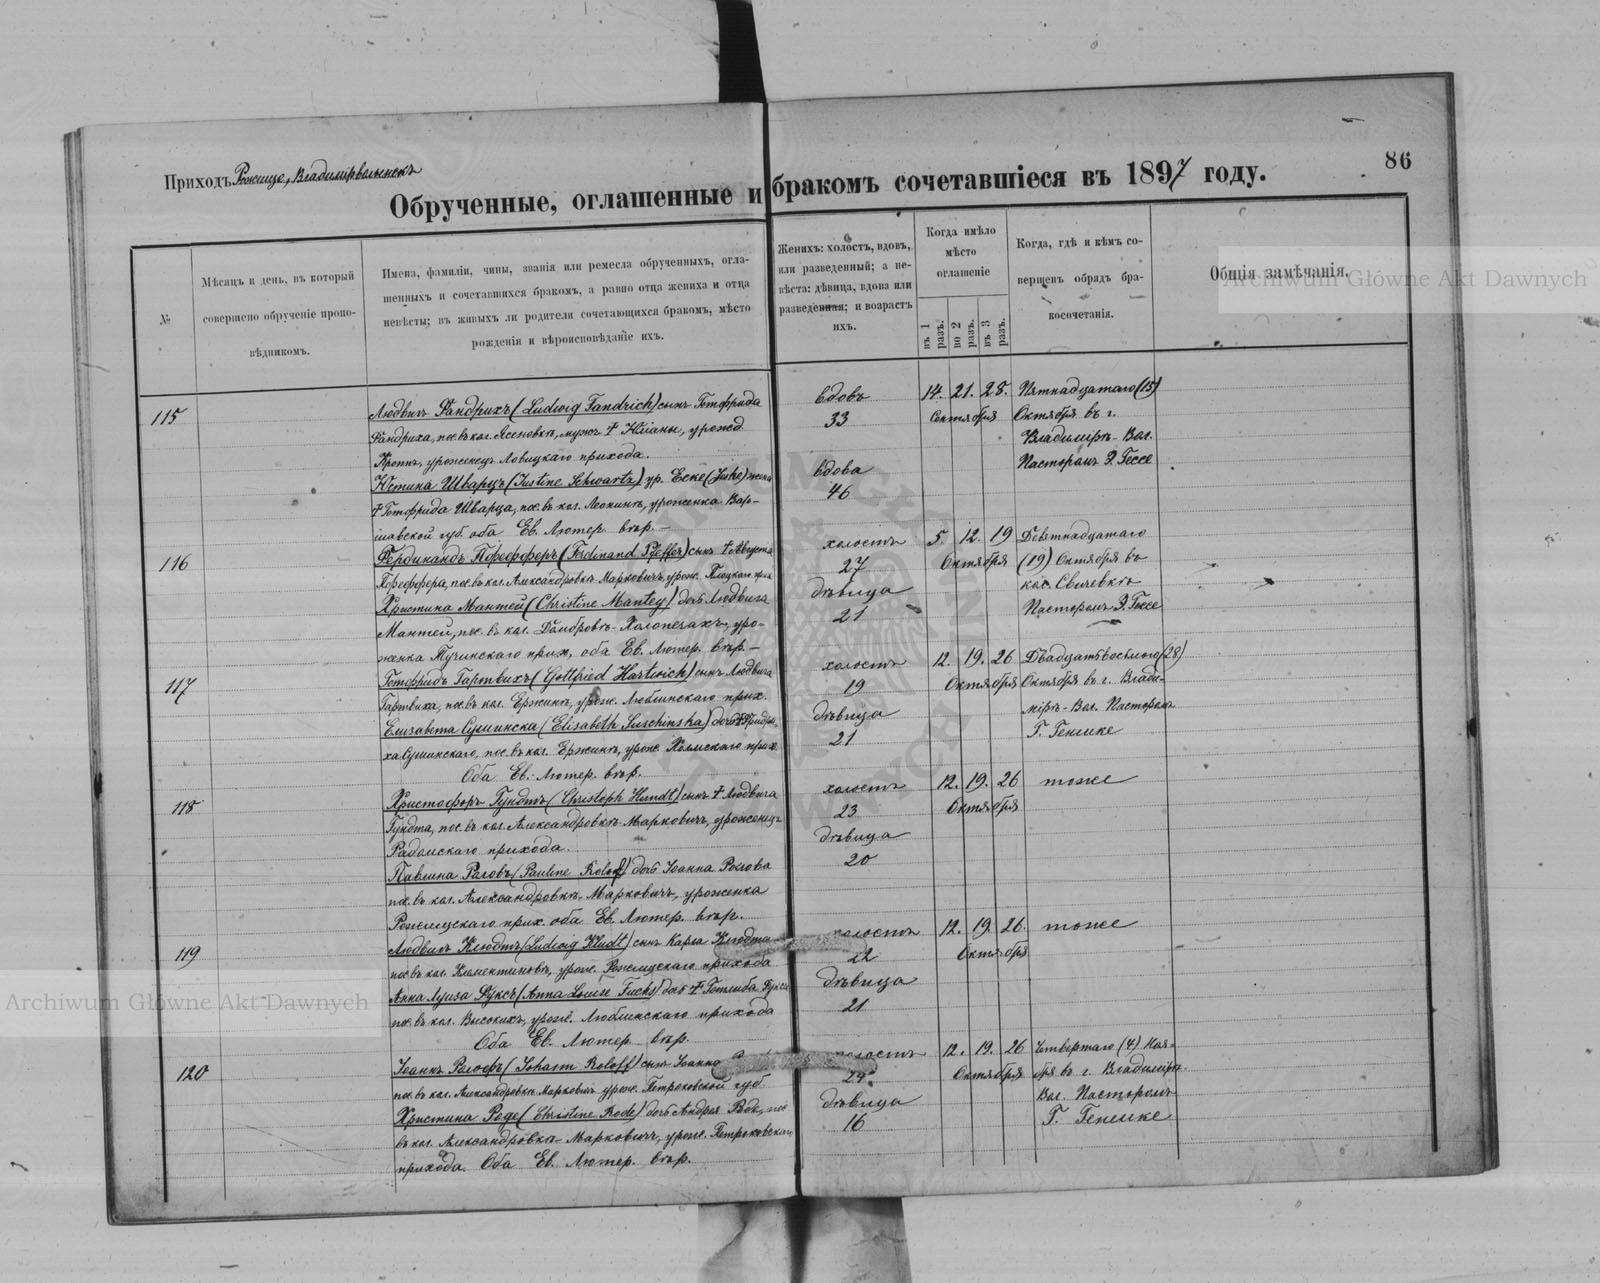 86
Приходъ Рожище, Владимірволынскъ
Обрученные, оглашенные и бракомъ сочетавшіеся въ 1897 году.
№
Мѣсяцъ и день, въ который
совершено обрученіе пропо-
вѣдникомъ.
Имена, фамиліи, чины, званія или ремесла обрученныхъ, огла-
шенныхъ и сочетавшихся бракомъ, а равно отца жениха и отца
невѣсты; въ живыхъ ли родители сочетающихся бракомъ, мѣсто
рожденія и вѣроисповѣданіе ихъ.
Женихъ: холостъ, вдовъ,
или разведенный; а не-
вѣста: дѣвица, вдова или
разведенная; и возрастъ
ихъ.
Когда имѣло
мѣсто
оглашеніе
въ 1 разъ.
во 2 разъ.
въ 3 разъ.
Когда, гдѣ и кѣмъ со-
вершенъ обрядъ бра-
косочетанія.
Общія замѣчанія.
Archiwum Główne Akt Dawnych
115
Людвигъ Фандрихъ (Ludwig Fandrich) сынъ Готфрида
Фандриха, пос. въ кол. Ясеновкѣ, мужъ † Юліаны, урожд.
Кроппъ, уроженецъ Ловицкаго прихода.
Юстина Шварцъ (Justine Schwartz) ур. Еске (Jeske) жена
† Готфрида Шварца, пос. въ кол. Леонинѣ, уроженка Вар-
шавской губ. оба Ев. Лютер. вѣр. —
вдовъ
33
вдова
46
14. 21. 28.
Сентября
Пятнадцатаго (15)
Октября въ г.
Владимірѣ-Вол.
Пасторомъ Э. Гессе
116
Фердинандъ Пфефферъ (Ferdinand Pfeffer) сынъ † Августа
Пфеффера, пос. въ кол. Александровкѣ-Марковичъ, урож. Плоцкаго прих.
Христина Мантей (Christine Mantey) дочь Людвига
Мантей, пос. въ кол. Домбровѣ-Холопечахъ, уро-
женка Тучинскаго прих., оба Ев. Лютер. вѣр. —
холостъ
27
дѣвица
21
5. 12. 19
Октября
Девятнадцатаго
(19) Октября въ
кол. Свичевкѣ
Пасторомъ Э. Гессе
117
Готфридъ Гартвихъ (Gottfried Hartwich) сынъ Людвига
Гартвиха, пос. въ кол. Ержинѣ, урож. Люблинскаго прих.
Елизавета Сушинска (Elisabeth Suschinska) дочь † Фридри-
ха Сушинскаго, пос. въ кол. Ержинѣ, урож. Холмскаго прих.
Оба Ев. Лютер. вѣр.
холостъ
19
дѣвица
21
12. 19. 26
Октября
Двадцатьвосьмого (28)
Октября въ г. Влади-
мірѣ-Вол. Пасторомъ
Г. Генике
118
Христофоръ Гундтъ (Christoph Hundt) сынъ † Людвига
Гундта, пос. въ кол. Александровкѣ-Марковичъ, уроженецъ
Радомскаго прихода.
Павлина Роловъ (Pauline Roloff) дочь Іоанна Ролова
пос. въ кол. Александровкѣ-Марковичъ, уроженка
Рожищскаго прих. оба Ев. Лютер. вѣр.
холостъ
23
дѣвица
20
12. 19. 26
Октября
тоже
119
Людвигъ Клюдтъ (Ludwig Kludt) сынъ Карла Клюдта
пос. въ кол. Климентиновкѣ, урож. Рожищскаго прихода
Анна Луиза Фуксъ (Anna Louise Fuchs) дочь † Готлиба Фукса
пос. въ кол. Высокихъ, урож. Люблинскаго прихода
Оба Ев. Лютер. вѣр.
холостъ
22
дѣвица
21
12. 19. 26.
Октября
тоже
Archiwum Główne Akt Dawnych
120
Іоаннъ Ролофъ (Johann Roloff) сынъ Іоанна
пос. въ кол. Александровкѣ-Марковичъ урож. Петроковской губ.
Христина Роде (Christine Rode) дочь Андрея Роде, пос.
въ кол. Александровкѣ-Марковичъ, урож. Петроковскаго
прихода. Оба Ев. Лютер. вѣр.
холостъ
24
дѣвица
16
12. 19. 26
Октября
Четвертаго (4) Ноя-
бря въ г. Владимірѣ-
Вол. Пасторомъ
Г. Генике